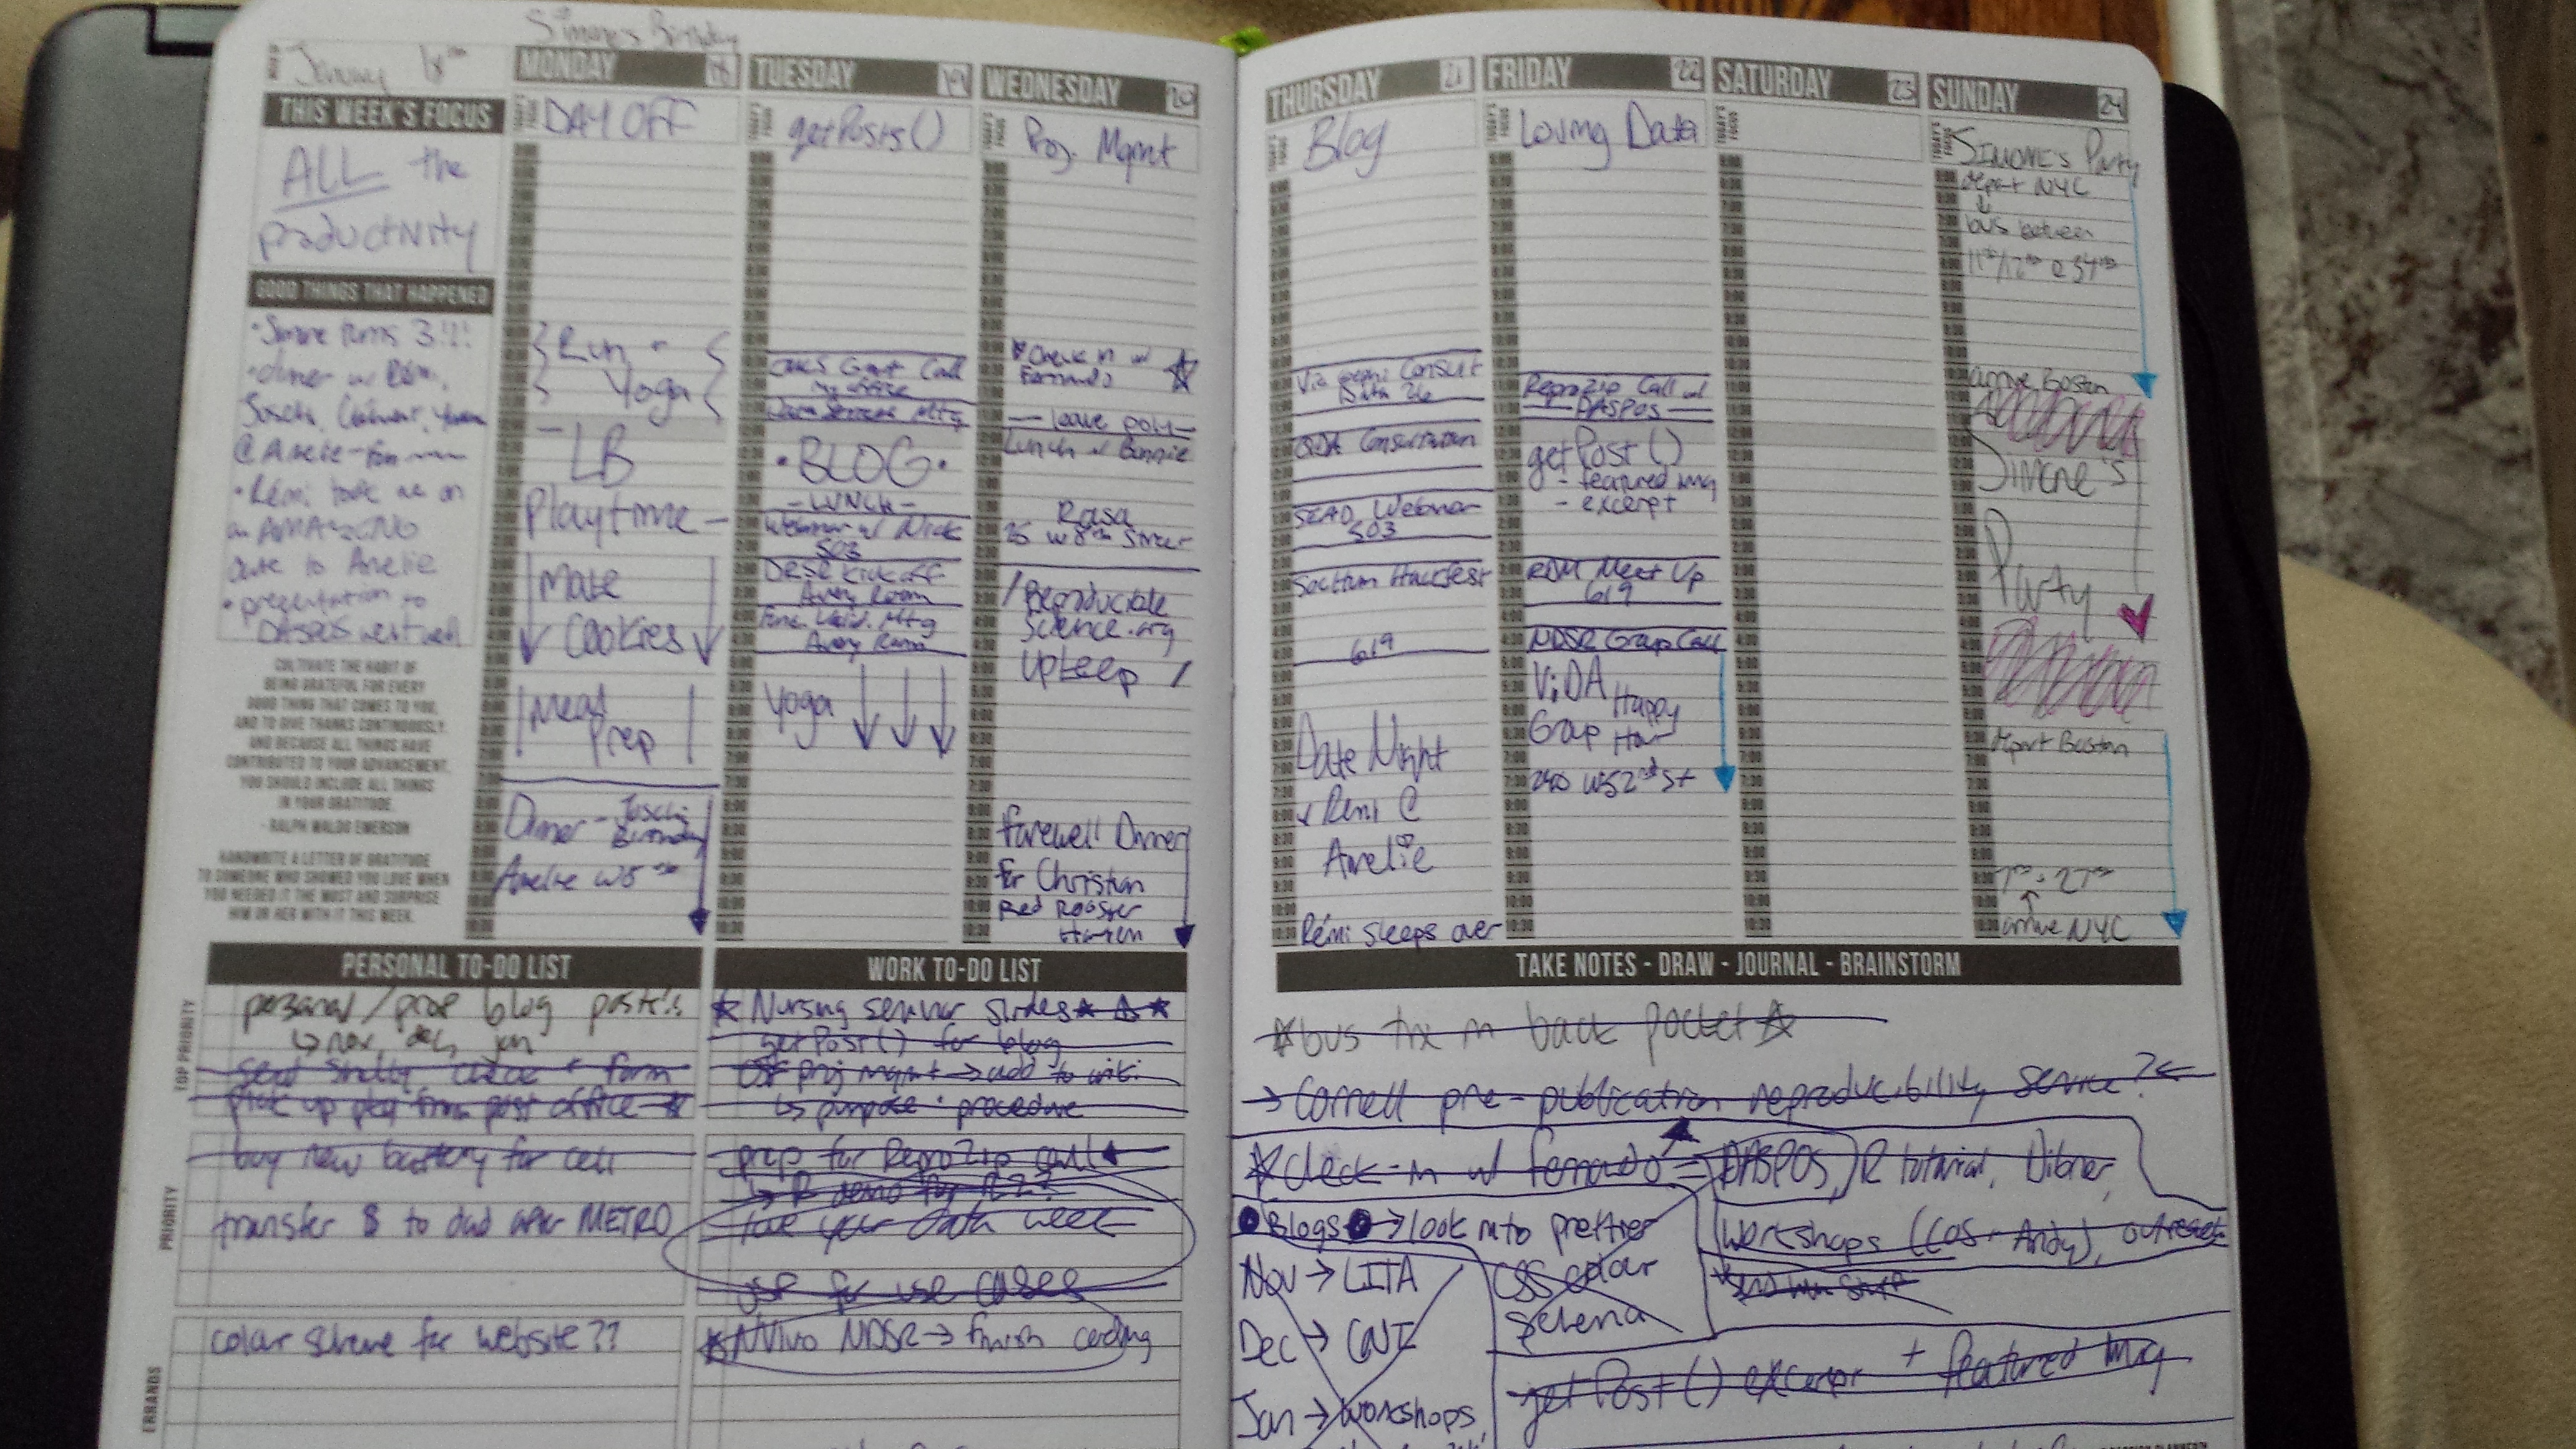 Simone's Birthday
January 18th
THIS WEEK'S FOCUS
ALL the
productivity
GOOD THINGS THAT HAPPENED
• Simone turns 3!!!
• dinner w/ Rémi,
@ Amelie
• Rémi took me on
date to Amelie
• presentation to
DASPOS went well
CULTIVATE THE HABIT OF
BEING GRATEFUL FOR EVERY
GOOD THING THAT COMES TO YOU,
AND TO GIVE THANKS CONTINUOUSLY.
AND BECAUSE ALL THINGS HAVE
CONTRIBUTED TO YOUR ADVANCEMENT,
YOU SHOULD INCLUDE ALL THINGS
IN YOUR GRATITUDE.
- RALPH WALDO EMERSON
HANDWRITE A LETTER OF GRATITUDE
TO SOMEONE WHO SHOWED YOU LOVE WHEN
YOU NEEDED IT THE MOST AND SURPRISE
HIM OR HER WITH IT THIS WEEK.
MONDAY 18
DAY OFF
Run +
Yoga
LB
Playtime
Make
Cookies
Meal
Prep
Dinner - Joschi
Birthday
Amelie W 8th
TUESDAY 19
getPosts()
Grant Call
my office
Data Services Mtg
• BLOG •
- LUNCH -
Webinar w/ Nick
503
Kick off
Avery Room
Avery Room
Yoga
WEDNESDAY 20
Proj. Mgmt
Check in w/
Fernando
- leave poly -
Lunch w/ Bonnie
Rasa
25 W 8th Street
/ Reproducible
Science.org
Upkeep /
Farewell Dinner
for Christian
Red Rooster
Harlem
THURSDAY 21
Blog
Consult
QDA Consultation
SEAD Webinar
503
Hackfest
619
Date Night
w/ Rémi @
Amelie
Rémi sleeps over
FRIDAY 22
Loving Data
ReproZip Call w/
- DASPOS -
getPost()
- featured img
- excerpt
RDM Meet Up
619
NDSR Group Call
ViDA Happy
Group Hour
240 W 52nd St
SATURDAY 23
SUNDAY 24
SIMONE'S Party
depart NYC
↓
bus between
11th/12th @ 34th
arrive Boston
Simone's
Party
depart Boston
7th & 27th
↑
arrive NYC
PERSONAL TO-DO LIST
TOP PRIORITY
personal / prof blog posts!!
↳ nov, dec, jan
send Shelly check + form
pick up pkg from post office ☆
PRIORITY
buy new battery for cell
transfer $ to dad after METRO
ERRANDS
color scheme for website??
WORK TO-DO LIST
☆ Nursing seminar slides ☆ ☆ ☆
getPost() for blog
OSF proj mgmt → add to wiki
↳ purpose + procedure
prep for ReproZip call
→ R demo for RZ?
love your data week
OSF for use cases
☆ NVivo NDSR → finish coding
TAKE NOTES - DRAW - JOURNAL - BRAINSTORM
☆ bus tix in back pocket ☆
→ Cornell pre-publication reproducibility service? ←
☆ check-in w/ Fernando = DASPOS, R tutorial, Dibner,
workshops (COS - Andy), outreach
• Blogs • → look into prettier
CSS color
schema
Nov → LITA
Dec → CNI
Jan → workshops,
getPost() excerpt + featured img